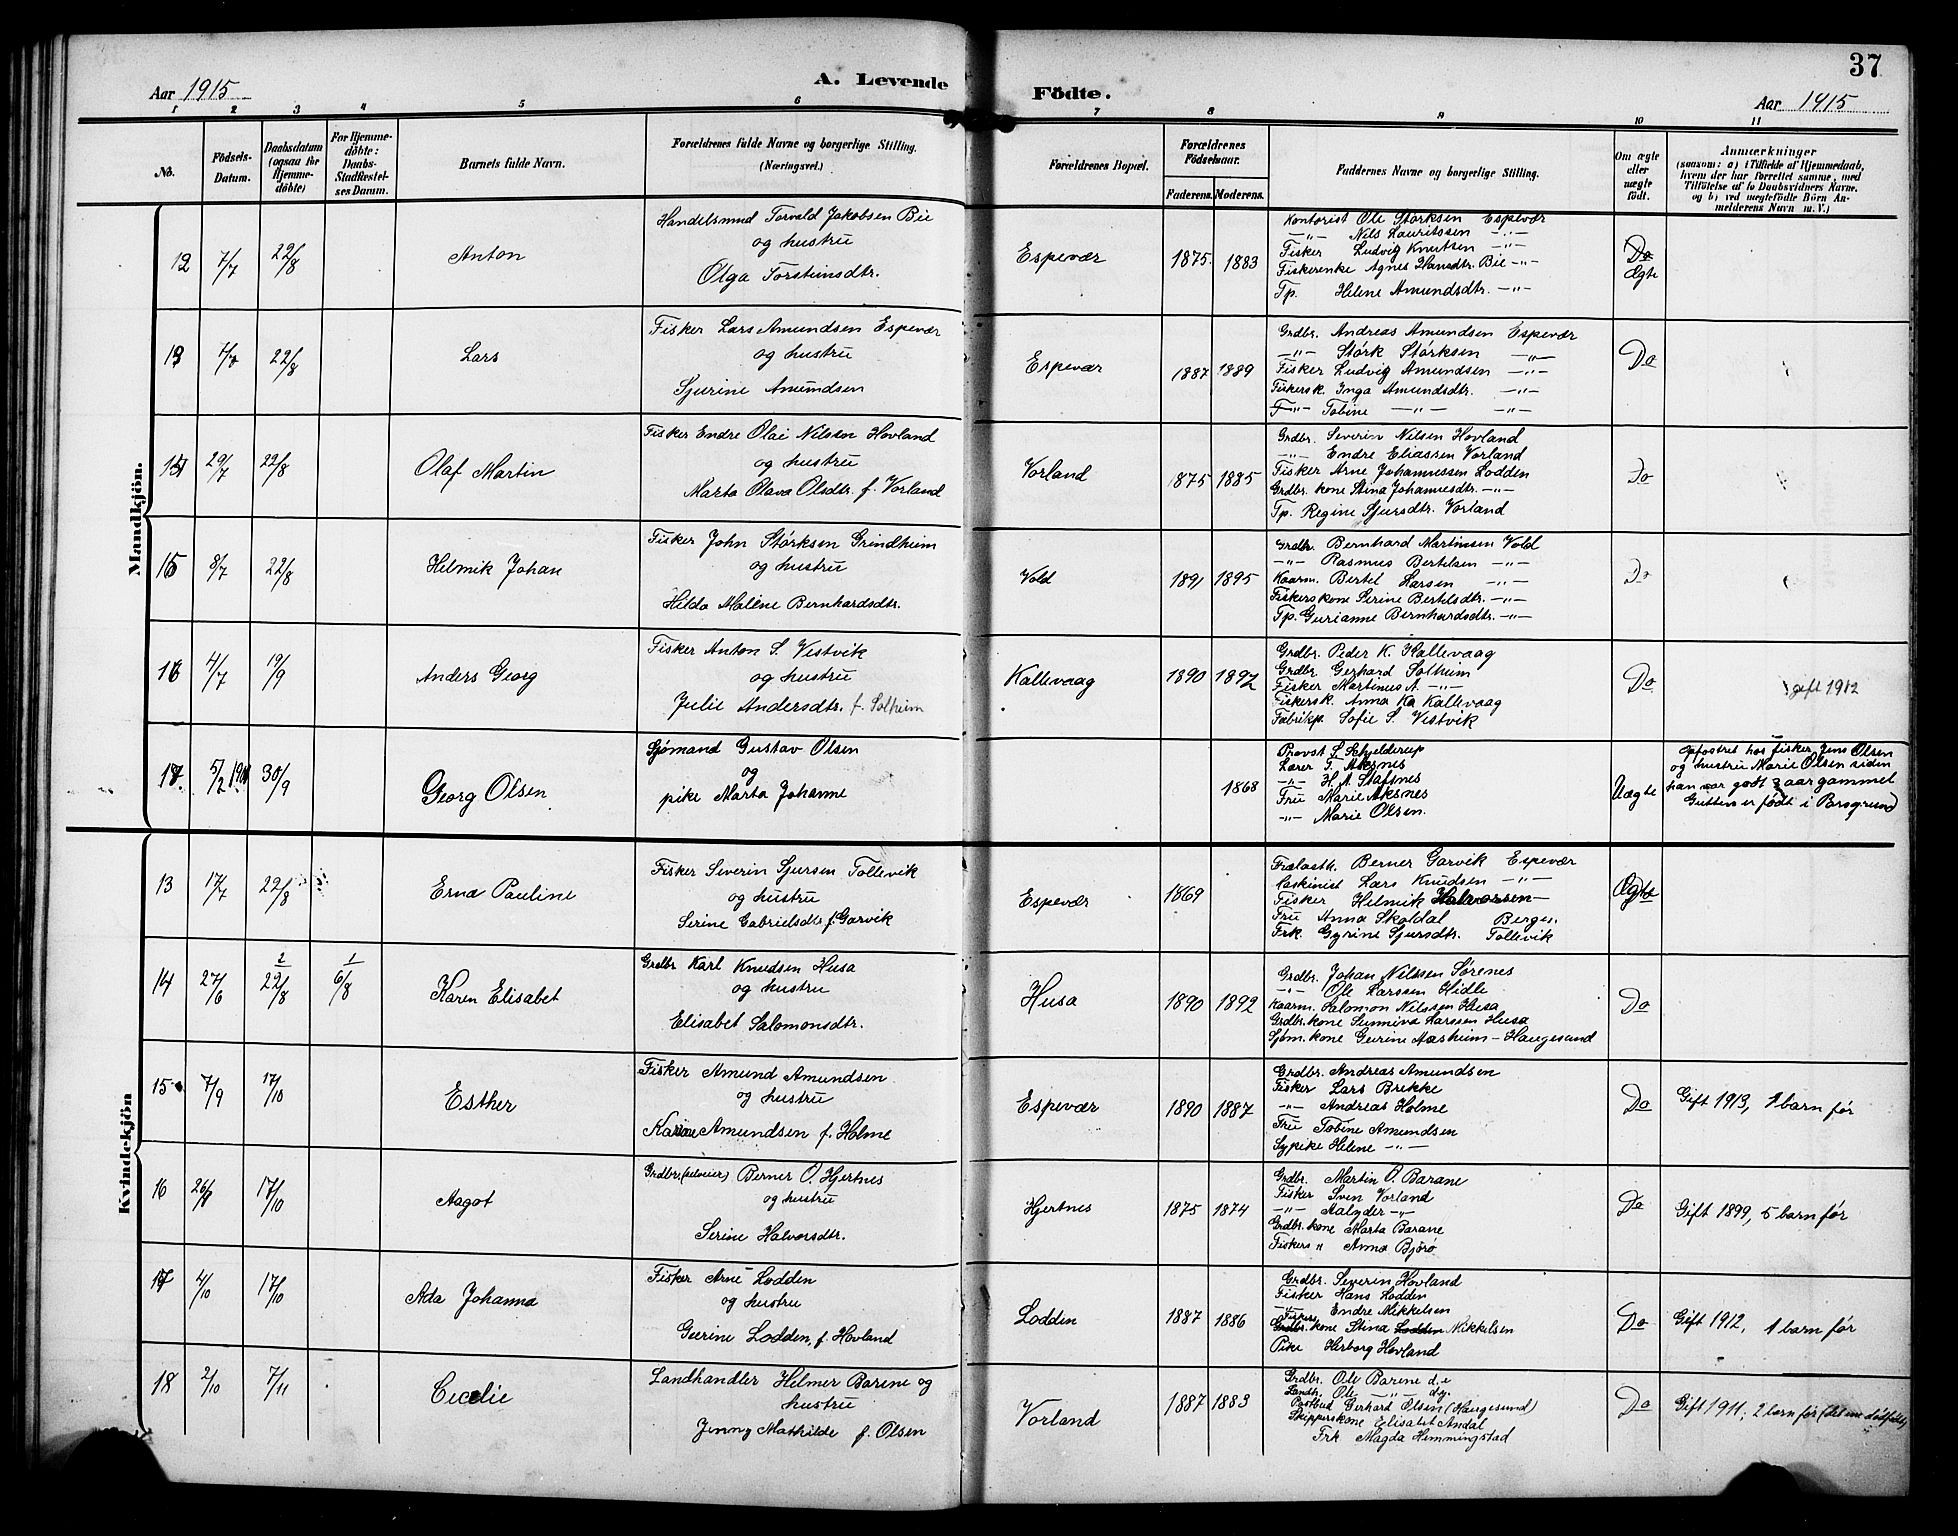 37
Aar 1915
A. Levende
Födte.
Aar 1915
1 2 3 4 5 6 7 8 9 10 11
No.
Födsels-
Datum.
Daabsdatum
(ogsaa for
Hjemme-
döbte)
For Hjemme-
döbte:
Daabs-
Stadfæstel-
ses Datum.
Barnets fulde Navn.
Forældrenes fulde Navne og borgerlige Stilling.
(Næringsvei.)
Forældrenes Bopæl.
Forældrenes
Födselsaar.
Faderens.
Moderens.
Faddernes Navne og borgerlige Stilling.
Om ægte
eller
uægte
födt.
Anmærkninger
(saasom: a) i Tilfælde af Hjemmedaab,
hvem der har forrettet samme, med
Tilföielse af to Daabsvidners Navne.
og b) ved uægtefödte Börn An-
melderens Navn m. V.)
Mandkjön.
12 7/7 22/8 Anton
Handelsmnd Torvald Jakobsen Bie
og hustru
Olga Torsteinsdtr.
Espevær 1875. 1883
Kontorist Ole Størksen Espevær
—"— Nils Lauritssen —"—
Fisker Ludvig Knutsen —"—
Fiskerenke Agnes Hansdtr. Bie —"—
Tp. Helene Amundsdtr. —"—
Do
Ægte
13 22/8 Lars
Fisker Lars Amundsen Espevær
og hustru
Sjurine Amundsen
Espevær 1887 1889
Grdbr. Andreas Amundsen Espevær
—"— Størk Størksen —"—
Fisker Ludvig Amundsen —"—
Fiskersk. Inga Amundsdtr. —"—
—"— Tobine —"— —"—
Do
29/7 22/8 Olaf Martin
Fisker Endre Olai Nilsen Hovland
og hustru
Marta Olava Olsdtr. f. Vorland
Vorland 1875 1885
Grdbr. Severin Nilsen Hovland
—"— Endre Eliassen Vorland
Fisker Arne Johannessen Lodden
Grdbr. kone Stina Johannesdtr. —"—
Tp. Regine Sjursdtr. Vorland
Do
8/7 22/8 Helmik Johan
Fisker John Størksen Grindheim
og hustru
Hilda Malene Bernhardsdtr.
Vold 1891 1895
Grdbr. Bernhard Martinsen Vold
—"— Rasmus Bertelsen —"—
Kaarm. Bertel Larsen —"—
Fiskerskone Serine Bertelsdtr. —"—
Tp. Gurianne Bernhardsdtr. —"—
Do
16 4/7 19/9 Anders Georg
Fisker Anton S. Vestvik
og hustru
Julie Andersdtr. f. Solheim
Kallevaag 1890 1892
Grdbr. Peder K. Kallevaag
Grdbr. Gerhard Solheim
Fisker Martinus A. —"—
Fiskersk. Anna Ka Kallevaag
Fabrikp. Sofie S. Vestvik
Do
gift 1912
17. 5/2 30/9 Georg Olsen
Sjømand Gustav Olsen
og
pike Marta Johanne
1868
Provst S. Schjelderup
Lærer T. Aksnes
—"— H. A. Stafsnes
Fru Marie Aksnes
—"— Marie Olsen.
Uægte
opfostret hos fisker Jens Olsen
og hustru Marie Olsen siden
han var godt 3 aar gammel
Gutten er født i Porsgrund
Kvindekjön
13 17/7 22/8 Erna Pauline
Fisker Severin Sjursen Tollevik
og hustru
Serine Gabrielsdtr f. Garvik
Espevær 1869
Berner Garvik Espevær
Lars Knudsen —"—
Fisker Helmik Halvorsen —
Fru Anna Skoldal Bergen.
Frk. Gyrine Sjursdtr. Tollevik
Ægte
14 27/6 2 22/8 1 6/8 Karen Elisabet
Grdbr Karl Knudsen Husa
og hustru
Elisabet Salomonsdtr.
Husa 1890 1892
Grdbr. Johan Nilssen Sørenes
—"— Ole Larssen Hidle
Kaarm. Salomon Nilssen Husa
Grdbr. kone Sunniva Larssen Husa
Sjøm. kone Gurine Aasheim — Haugesund
Do
15 7/9 17/10 Esther
Fisker Amund Amundsen
og hustru
Karine Amundsen f. Holme
Espevær 1890 1887
Grdbr. Andreas Amundsen
Fisker Lars Brekke
—"— Andreas Holme
Fru Tobine Amundsen
Sypike Helene —"—
Do
Gift 1913, 1 barn før
16 17/10 Aagot
Grdbr. (selveier) Berner O. Hjertnes
og hustru
Serine Halvorsdtr.
Hjertnes 1875 1874
Grdbr. Martin O. Barane
Fisker Sven Vorland
—"— Aalyder —"—
Grdbr. kone Marta Barane
Fiskers " Anna Bjørø
Do
Gift 1899, 5 barn før
17 4/10 17/10 Ada Johanna
Fisker Arne Lodden
og hustru
Gurine Lodden, f. Hovland
Lodden 1887 1886
Grdbr. Severin Hovland
Fisker Hans Lodden
—"— Endre Mikkelsen
Fiskers
Grdbr. kone Stina Lodden Mikkelsen
Pike Herborg Hovland
Do
Gift 1912, 1 barn før
18 2/10 7/11 Cecelie
Landhandler Helmer Barene og
hustru
Jenny Mathilde f. Olsen
Vorland 1887 1883
Grdbr. Ole Barene d.e
Landh. Ole —"— d.y.
Postbud Gerhard Olsen (Haugesund)
Skipperskone Elisabet Andal
Frk Magda Hemmingstad
Do
Gift 1911; 2 barn før (det ene dødfødt)